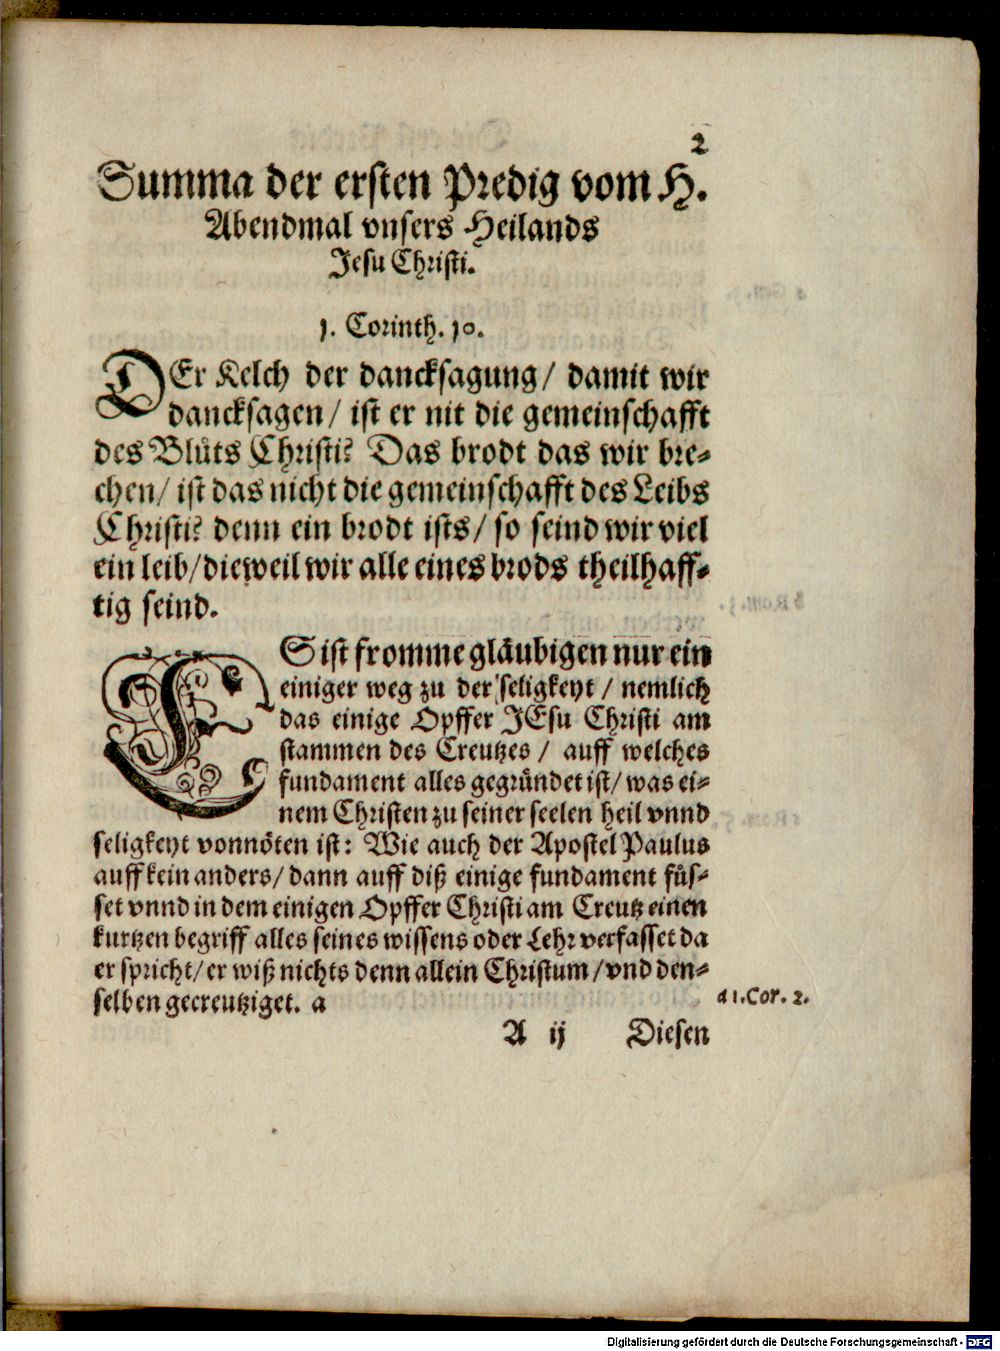 2
Summa der ersten Predig vom H.
Abendmal vnsers Heilands
Jesu Christi.
1. Corinth. 10.
DEr Kelch der dancksagung/ damit wir
dancksagen/ ist er nit die gemeinschafft
des Blůts Christi? Das brodt das wir bre-
chen/ ist das nicht die gemeinschafft des Leibs
Christi? denn ein brodt ists/ so seind wir viel
ein leib/ dieweil wir alle eines brods theilhaff-
tig seind.
ES ist fromme gläubigen nur ein
einiger weg zu der seligkeyt/ nemlich
das einige Opffer JEsu Christi am
stammen des Creutzes/ auff welches
fundament alles gegründet ist/ was ei-
nem Christen zu seiner seelen heil vnnd
seligkeyt vonnöten ist: Wie auch der Apostel Paulus
auff kein anders/ dann auff diß einige fundament füs-
set vnnd in dem einigen Opffer Christi am Creutz einen
kurtzen begriff alles seines wissens oder Lehr verfasset da
er spricht/ er wiß nichts denn allein Christum/ vnd den-
selben gecreutziget. a
a 1. Cor. 2.
A ij Diesen
Digitalisierung gefördert durch die Deutsche Forschungsgemeinschaft - DFG